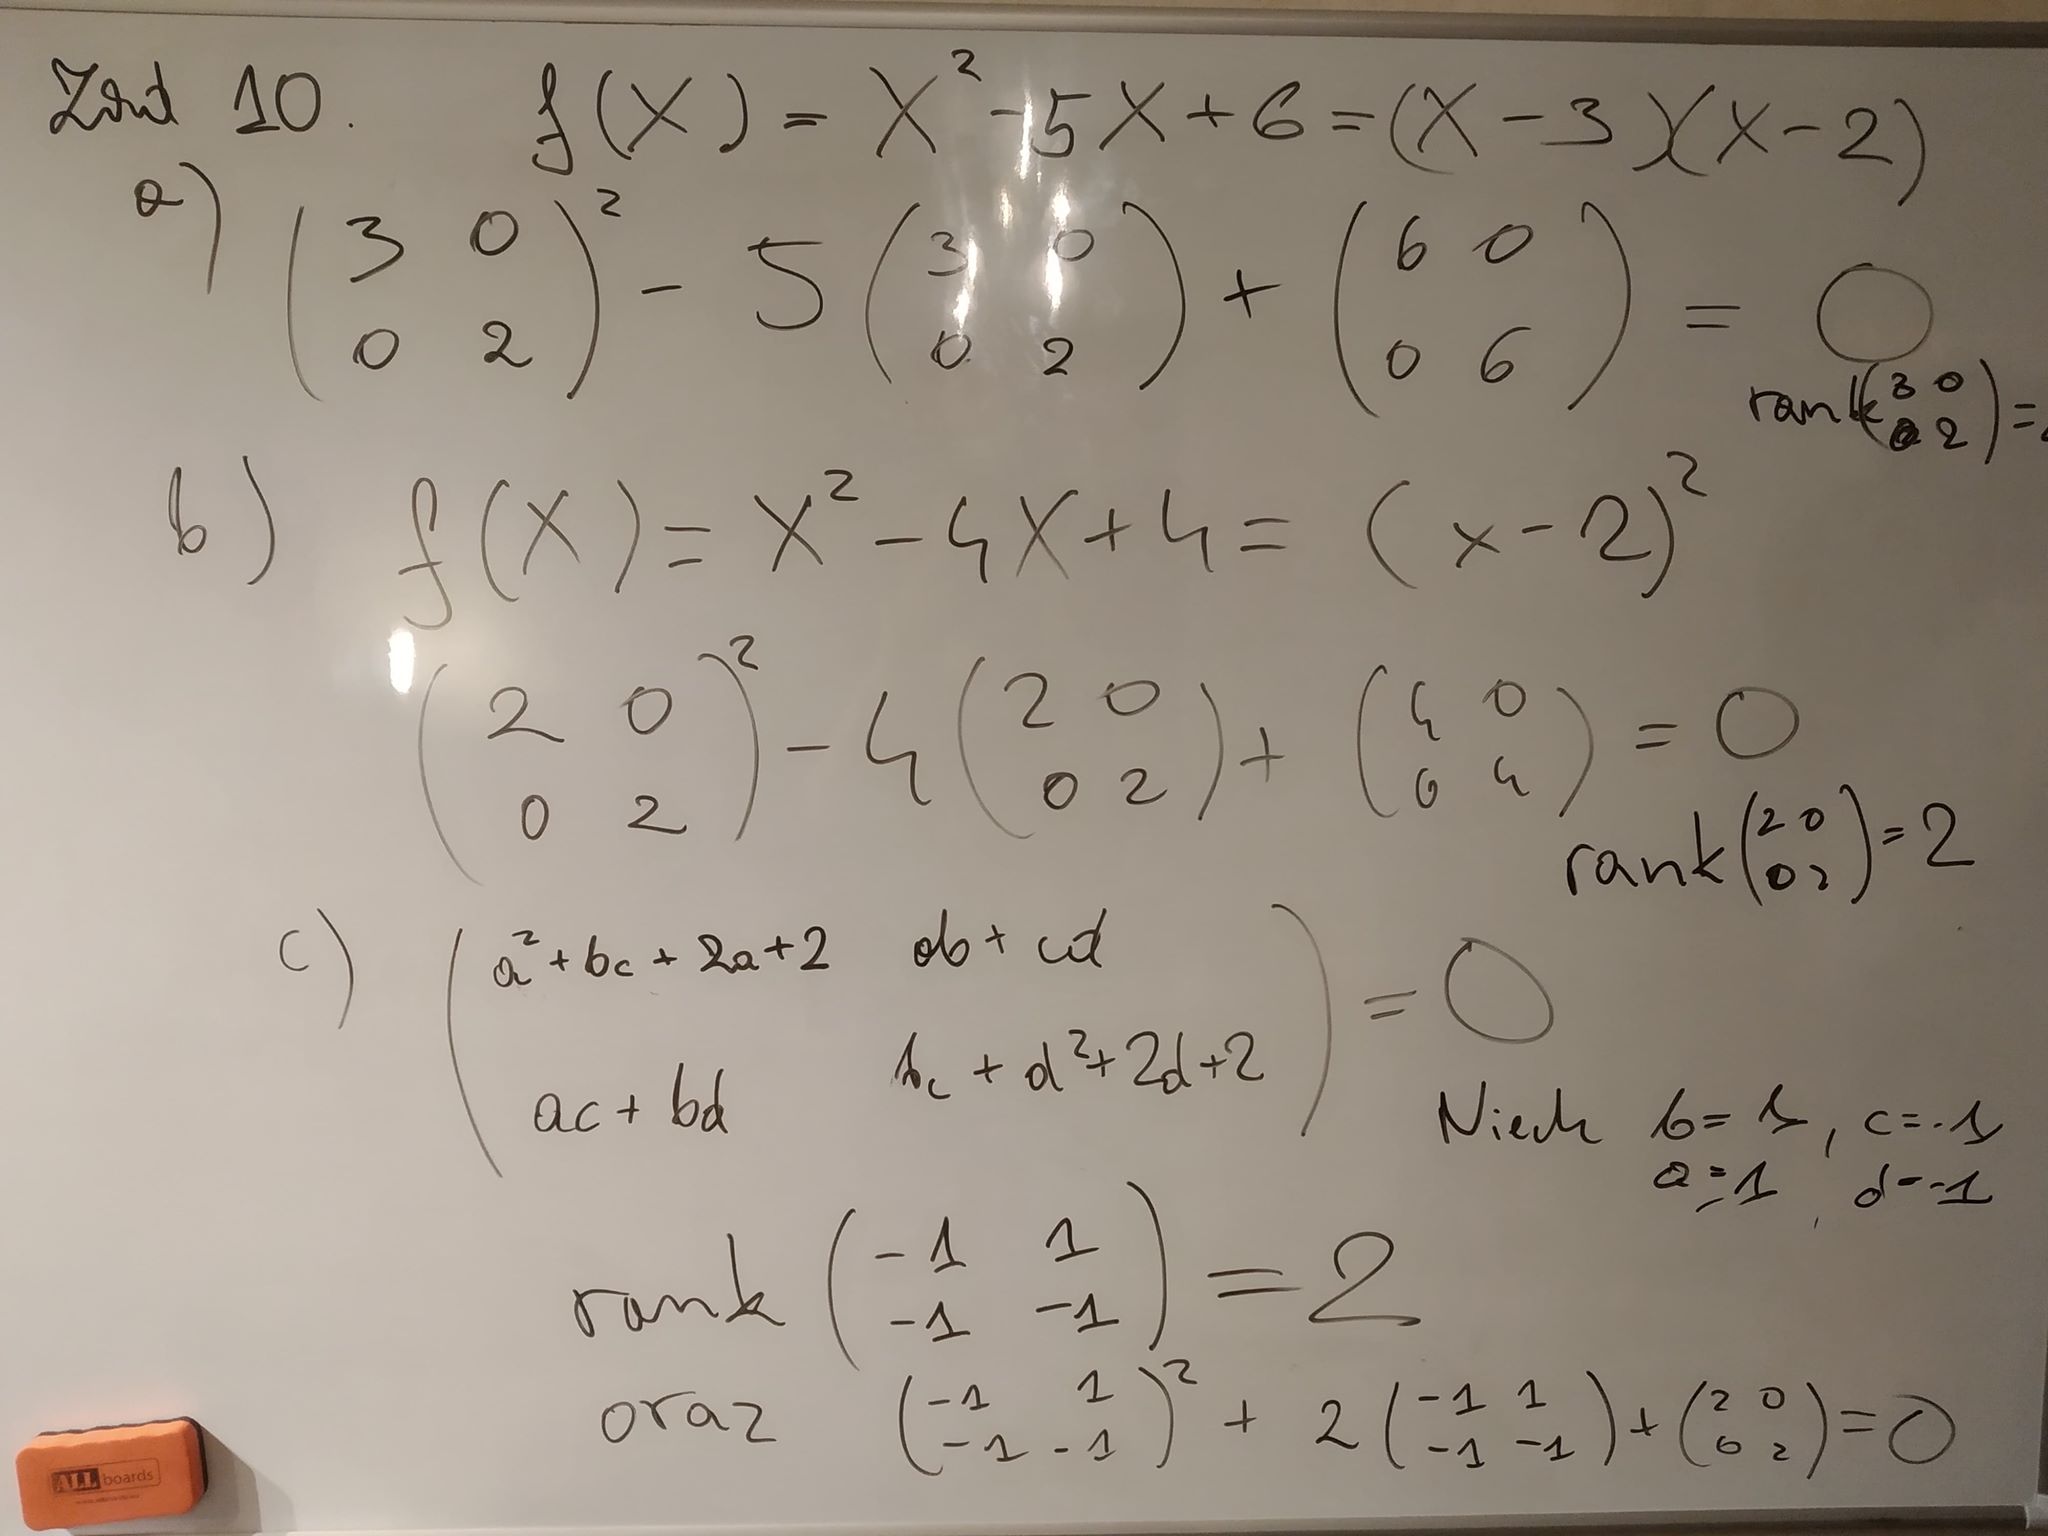 Zad 10. f(X) = X² - 5X + 6 = (X - 3)(X - 2)
a) (3 0; 0 2)² - 5 (3 0; 0 2) + (6 0; 0 6) = 0
rank (3 0; 0 2) =
b) f(X) = X² - 4X + 4 = (x - 2)²
(2 0; 0 2)² - 4 (2 0; 0 2) + (4 0; 0 4) = 0
rank (2 0; 0 2) = 2
c) (a² + bc + 2a + 2 ab + cd; ac + bd bc + d² + 2d + 2) = 0
Niech b = 1, c = -1
a = 1, d = -1
rank (-1 1; -1 -1) = 2
oraz (-1 1; -1 -1)² + 2 (-1 1; -1 -1) + (2 0; 0 2) = 0
ALLboards